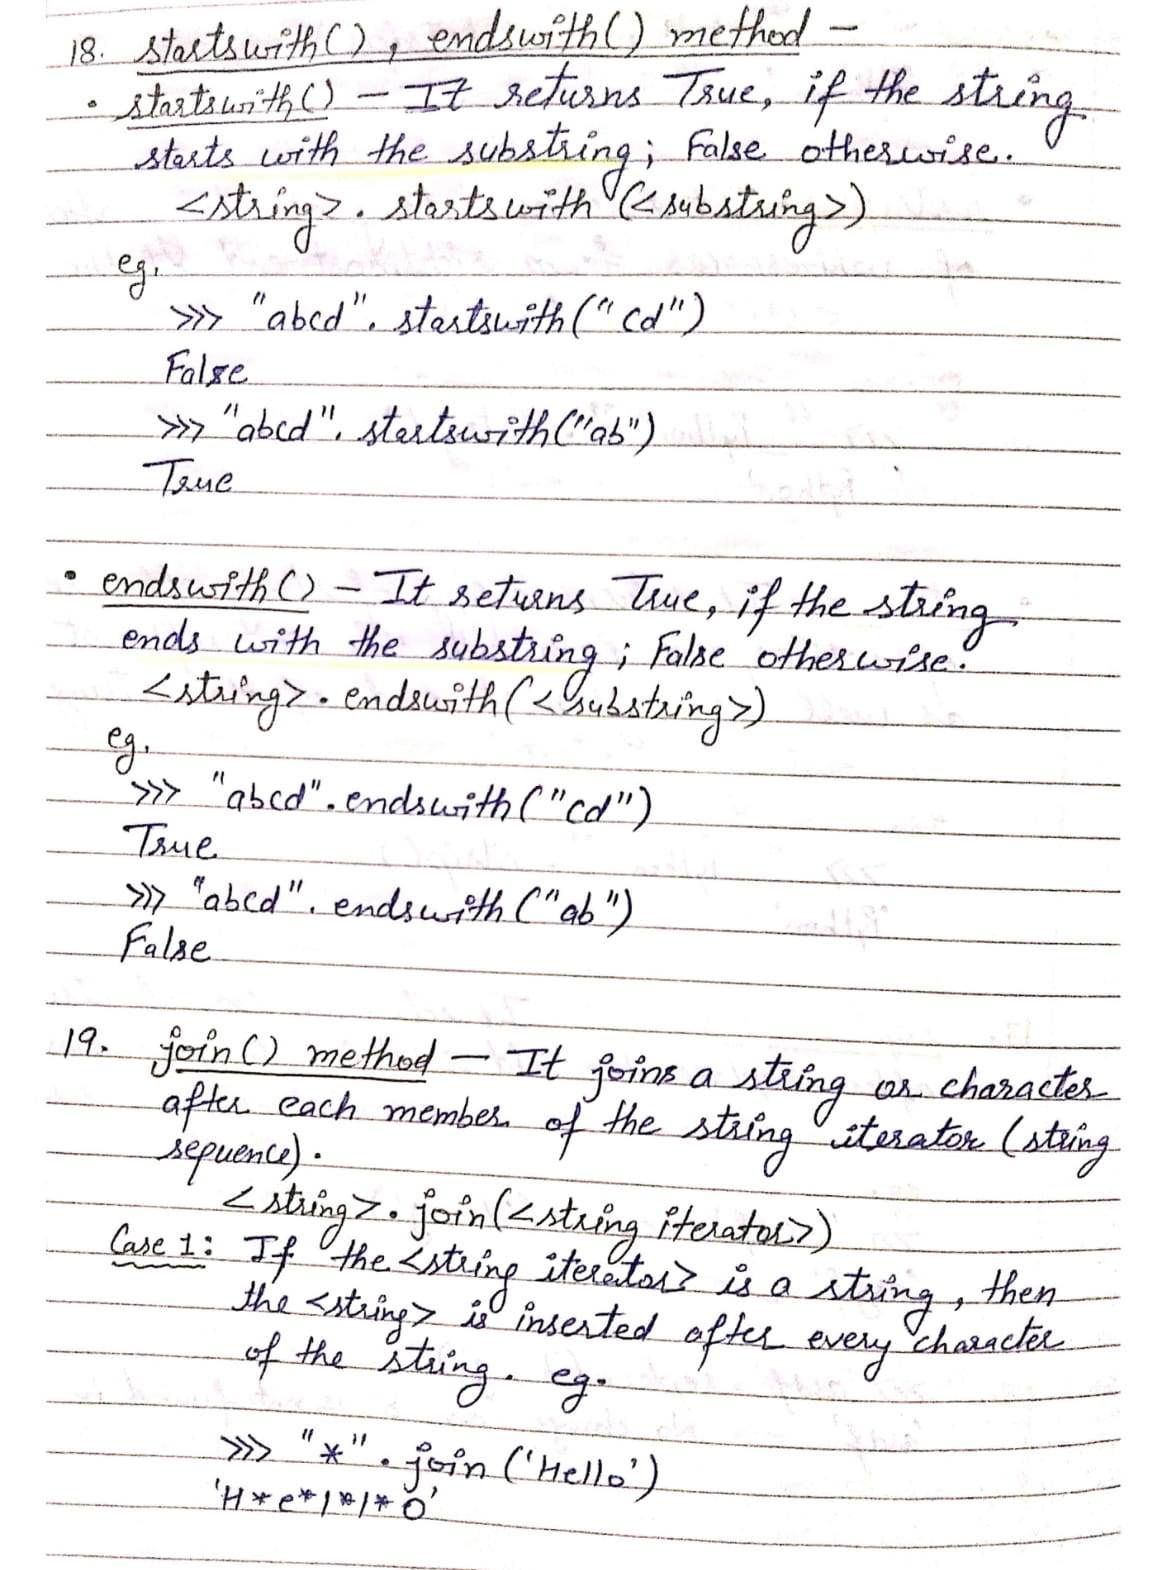 18. startswith(), endswith() method –
• startswith() – It returns True, if the string
starts with the substring; False otherwise.
<string>. startswith (<substring>)
eg.
>>> "abcd". startswith("cd")
False
>>> "abcd". startswith("ab")
True
• endswith() – It returns True, if the string
ends with the substring; False otherwise.
<string>. endswith(<substring>)
eg.
>>> "abcd". endswith("cd")
True
>>> "abcd". endswith("ab")
False
19. join() method – It joins a string or character
after each member of the string iterator (string
sequence).
<string>. join(<string iterator>)
Case 1: If the <string iterator> is a string, then
the <string> is inserted after every character
of the string. eg.
>>> "*". join ('Hello')
'H*e*l*l*o'